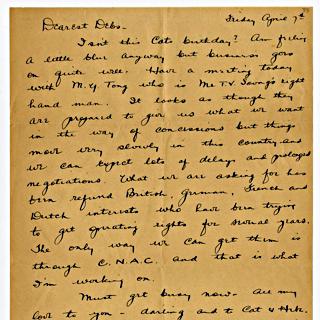 Friday April 7th
Dearest Debs.
Isn't this Cats birthday? Am feeling
a little blue anyway but business goes
on quite well. Have a meeting today
with M.Y. Tong who is Mr T.V. Soong's right
hand man. It looks as though they
are prepared to give us what we want
in the way of concessions but things
move very slowly in this country and
we can expect lots of delay and prolonged
negotiations. What we are asking for has
been refused British, German, French and
Dutch interests who have been trying
to get operating rights for several years.
The only way we can get them is
through C.N.A.C. and that is what
I'm working on.
Must get busy now - All my
love to you - darling and to Cat &